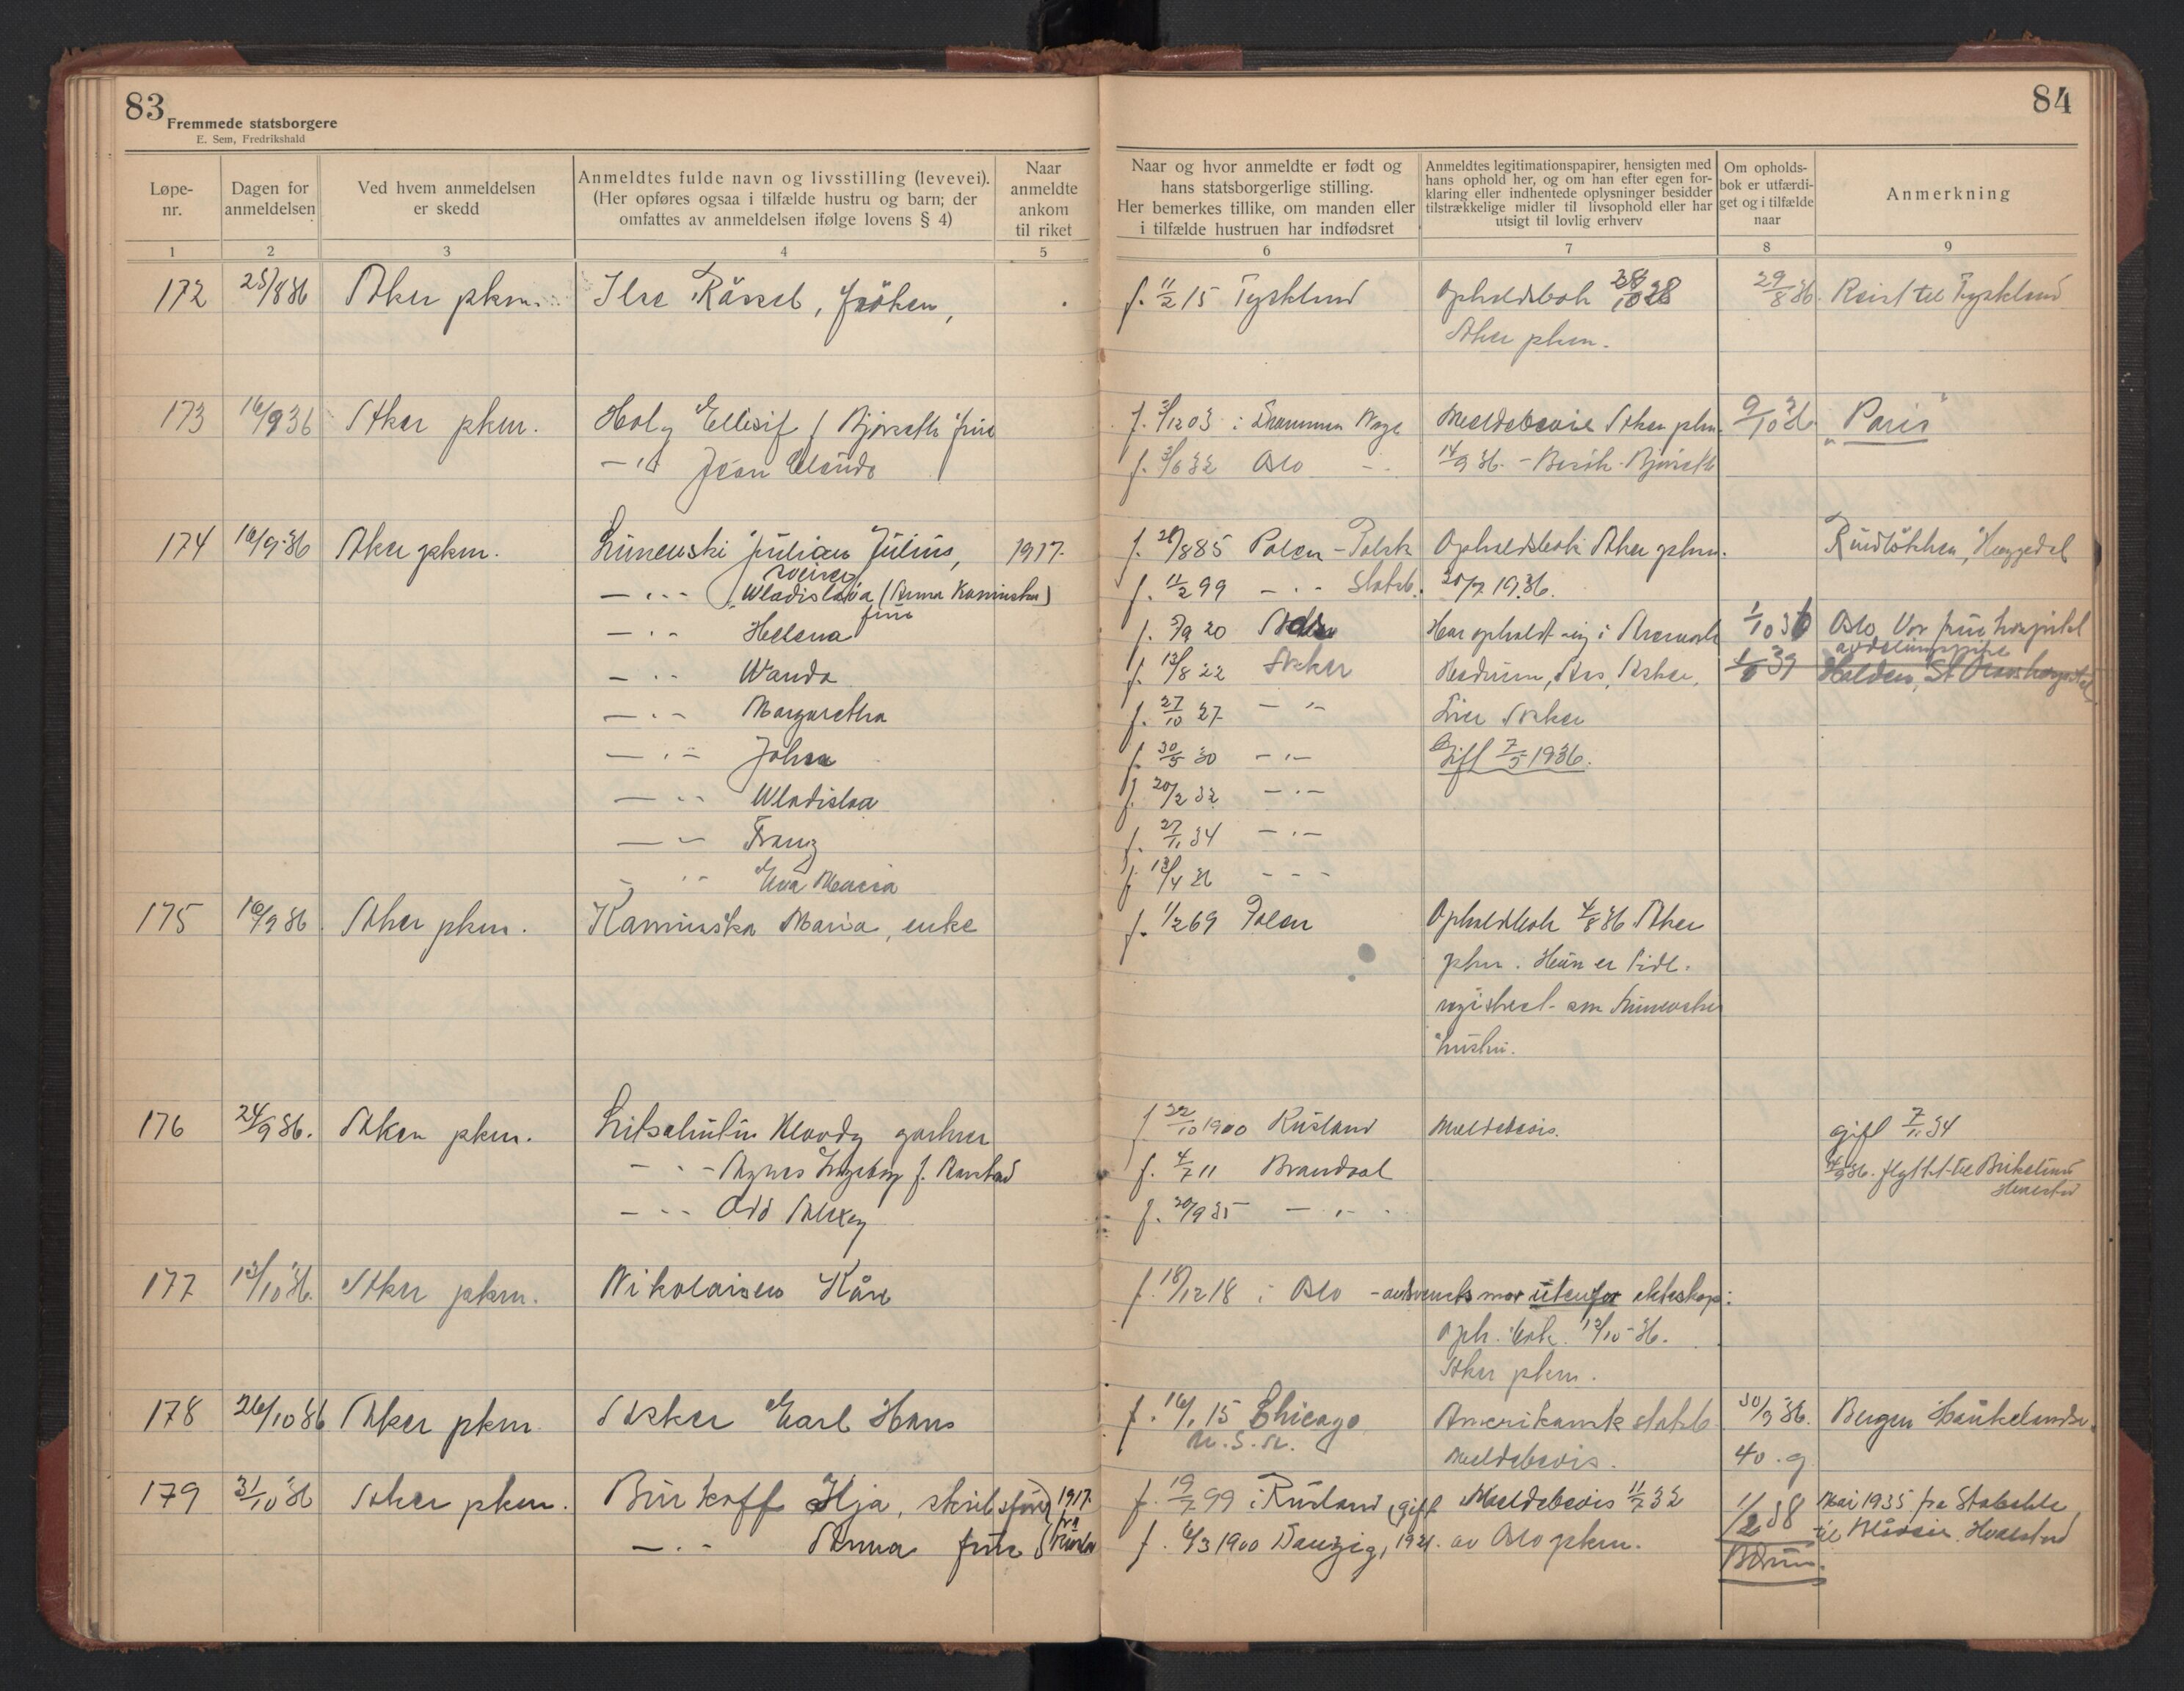 83
Fremmede statsborgere
E. Sem, Fredrikshald
Løpe-
nr.
Dagen for
anmeldelsen
Ved hvem anmeldelsen
er skedd
Anmeldtes fulde navn og livsstilling (levevei).
(Her opføres ogsaa i tilfælde hustru og barn; der
omfattes av anmeldelsen ifølge lovens § 4)
Naar
anmeldte
ankom
til riket
1 2 3 4 5
84
Naar og hvor anmeldte er født og
hans statsborgerlige stilling.
Her bemerkes tillike, om manden eller
i tilfælde hustruen har indfødsret
Anmeldtes legitimationspapirer, hensigten med
hans ophold her, og om han efter egen for-
klaring eller indhentede oplysninger besidder
tilstrækkelige midler til livsophold eller har
utsigt til lovlig erhverv
Om opholds-
bok er utfærdi-
get og i tilfælde
naar
Anmerkning
6 7 8 9
172 25/8 36 Asker pkm. Ilse , frøken, f. 11/2 15 Tyskland Opholdsbok 28 29/8 36. Reist til Tyskland
Asker pkm.
173 16/9 36 Asker pkm. Holy Ellisif f. Bjørseth frue f. 3/12 03 i Drammen Norge Meldebevis Asker pkm. 9/10 36 "Paris"
— " — Jean f. 3/6 32 Oslo - - 14/9 36. - Besøk - Bjørseth
174 16/9-36 Asker pkm. Lunewski Julian Julius, 1917. f. 28/8 85 Polen - Polsk Opholdsbok Asker pkm.
sveiser
— " — Wladislawa (Anna Kaminska) f. 11/2 99 — " — Statsb. 20/7 1936.
frue
— " — Helena f. 5/9 20 Har opholdt sig i 1/10 36 Oslo, Vor frue hospital
— " — Wanda f. 13/8 22 Asker Hedrum, Aas, Asker, 39 Halden, St
— " — Margaretha f. 27/10 27 — " — Lier Asker
— " — Johan f. 30/5 30 — " — Gift 7/5 1936.
— " — Wladislaa f. 20/2 32 — " —
— " — Franz f. 27/11 34 — " —
— " — Eva Maria f. 13/4 36 — " —
Røedløkken, Heggedal
175 16/9 36 Asker pkm. Kaminska Maria, enke f. 11/2 69 Polen Opholdsbok 4/8 36 Asker
pkm. Hun er tidl.
registrert som Lunewskis
hustru.
176 24/9 36. Asker pkm. f. 22/10 1900 Rusland Meldebevis. gift 7/11 34
— " — Agnes Ingeborg f. f. 4/7 11 Brandval flyttet til
Hvalstad
— " — Odd Alexey f. 20/9 35 — " —
177 13/10 36. Asker pkm. Nikolaisen Kåre f. 18/12 18 i Oslo - av svensk mor utenfor ekteskap.
Oph. bok. 12/10-36.
Asker pkm.
178 26/10 36 Asker pkm. Asker Earl Hans f. 16/1 15 Chicago Amerikansk statsb. 30/9 36. Bergen Haukelandsv.
U.S.A. Meldebevis. 40.g
179 31/10 36 Asker pkm. Burkoff Ilja, 1917 f. 19/7 99 i Rusland, gift Meldebevis 11/7 32 1/2 38 Mai 1935 fra Stabekk
fra
— " — Anna frue Rusland f. 6/3 1900 Danzig, 1921. av Oslo pkm. til Hvalstad
Bærum.